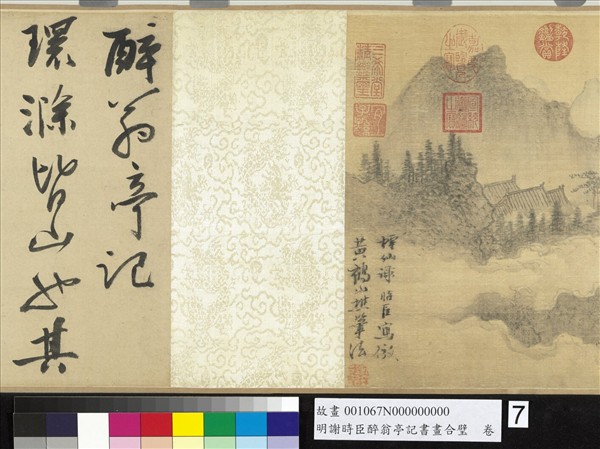 樗仙謝時臣寫倣
黃鶴山樵筆法
醉翁亭記
環滁皆山也其
故畫 001067N000000000
明謝時臣醉翁亭記書畫合璧 卷
7